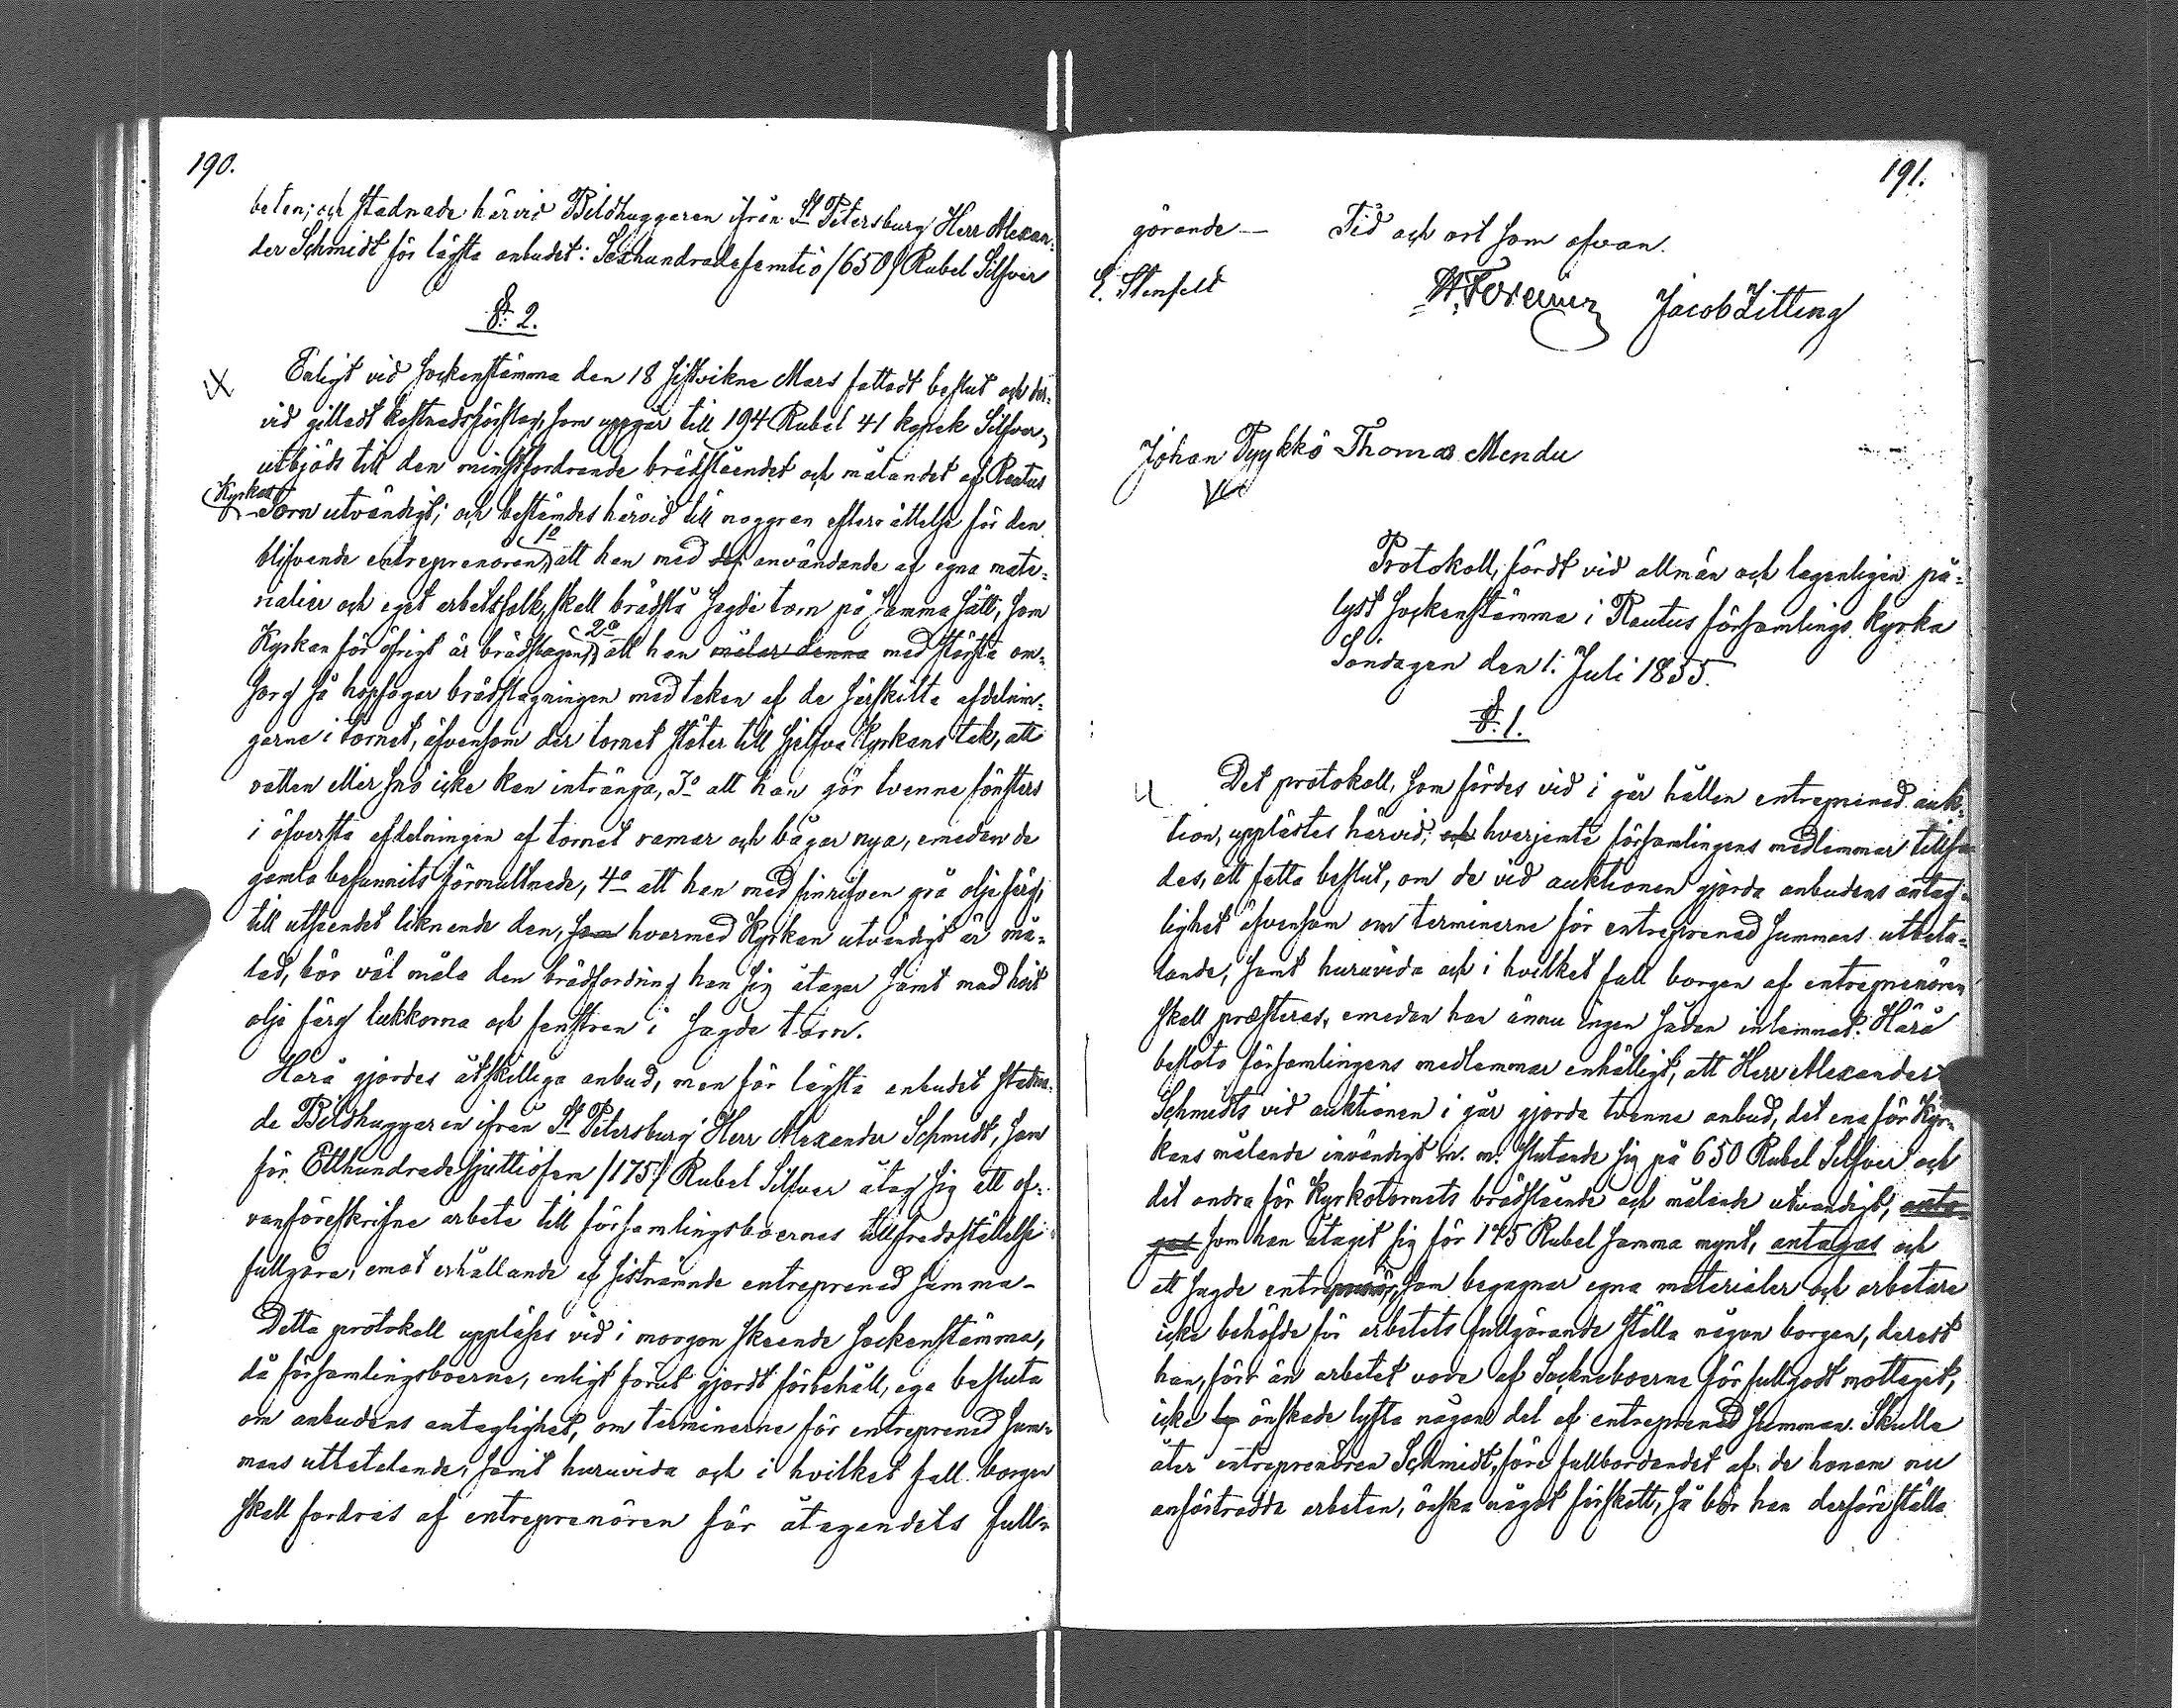 190.
beten; och stadnade härvid Bildhuggaren ifrån St Petersburg Herr Alexan-
der Schmidt för lägsta anbudet: Sexhundradefemtio /650/ Rubel Silfver
§. 2.
Enligt vid sockenstämma den 18 sistvikne Mars fattadt beslut och der-
vid gilladt kostnadsförslag, som uppgår till 194 Rubel 41 kopek Silfver,
utbjöds till den minstfordrande brädslåendet och målandet af Rautus
Kyrkas
Torn utvändigt; och bestämdes härvid till noggran efterrättelse för den
blifvande entreprenören, 1o att han med användande af egna mate-
rialier och eget arbetsfolk, skall brädslå sagde torn på samma sätt, som
Kyrkan för öfrigt är brädslagen, 2o att han målar denna med största om-
sorg så hopfogar brädslagningen med taken af de särskilta afdelnin-
garne i tornet, äfvensom der tornet stöter till sjelfva Kyrkans tak, att
vatten eller snö icke kan intränga, 3o att han gör tvenne fönsters
i öfversta afdelningen af tornet ramar och bågar nya, emedan de
gamla befunnits förmultnade, 4o att han med finrifven grå oljefärg,
till utseendet liknande den, som hvarmed Kyrkan utvändigt är må-
lad, bör väl måla den brädfordring han sig åtager samt med hvit
olje färg lukkorna och fenstren i sagde torn.
Härå gjordes åtskilliga anbud, men för lägsta anbudet stadna-
de Bildhuggaren ifrån St Petersburg Herr Alexander Schmidt, som
för Etthundrade sjuttiofem /175/ Rubel Silfver åtog sig att of-
vanföreskrifne arbete till församlingsboernes tillfredsställelse
fullgöra, emot erhållande af sistnämnde entreprenad summa -
Detta protokoll uppläses vid i morgon skeende sockenstämma,
då församlingsboerne, enligt förut gjordt förbehåll, ega besluta
om anbudens antaglighet, om terminerne för entreprenad sum-
mans utbetalande, samt huruvida och i hvilket fall borgen
skall fordras af entreprenören för åtagandets full-
191.
görande — Tid och ort som ofvan.
E. Stenfelt
Jacob Zitting
Johan Pyykkö Thomas Mendu
Protokoll, fördt vid allmän och lagenligen på-
lyst sockenstämma i Rautus församlings kyrka
Söndagen den 1. Juli 1855.
§. 1.
Det protokoll, som fördes vid i går hållen entreprenad auk-
tion, upplästes härvid; och hvarjemte församlingens medlemmar tillso
des, att fatta beslut, om de vid auktionen gjorda anbudens antag-
lighet äfvensom om terminerne för entreprenad summans utbeta-
lande, samt huruvida och i hvilket fall borgen af entreprenören
skall præsteras, emedan han ännu ingen sådan inlemnat. Härå
beslöto församlingens medlemmar enhälligt, att Herr Alexander
Schmidts vid auktionen i går gjorda tvenne anbud, det ena för Kyr-
kans målande invändigt m. m. slutande sig på 650 Rubel Silfver och
det andra för Kyrkotornets brädslående och målande utvändigt, anta-
gas som han åtagit sig för 175 Rubel samma mynt, antagas och
att sagde entreprenör, som begagnar egna materialer och arbetare
icke behöfde för arbetets fullgörande ställa någon borgen, derest
han, förr än arbetet vore af Sockneboerne för fullgodt mottaget,
icke ly önskade lyfta någon del af entreprenad summan. Skulle
åter entreprenören Schmidt, före fullbordandet af de honom nu
anförtrodde arbeten, äska något förskott, så bör han derföre ställa